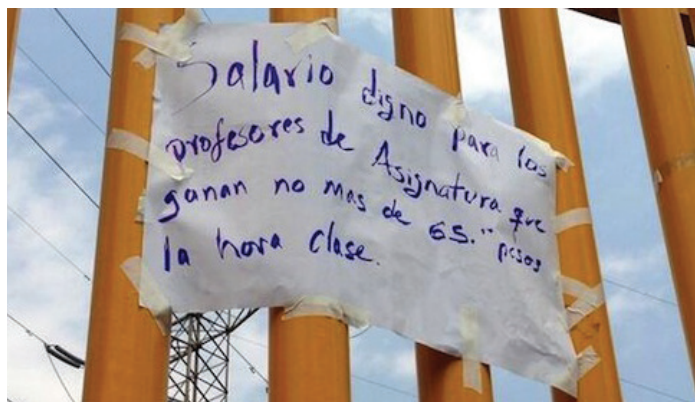 Salario digno para los
profesores de Asignatura que
ganan no mas de 65.°° pesos
la hora clase.